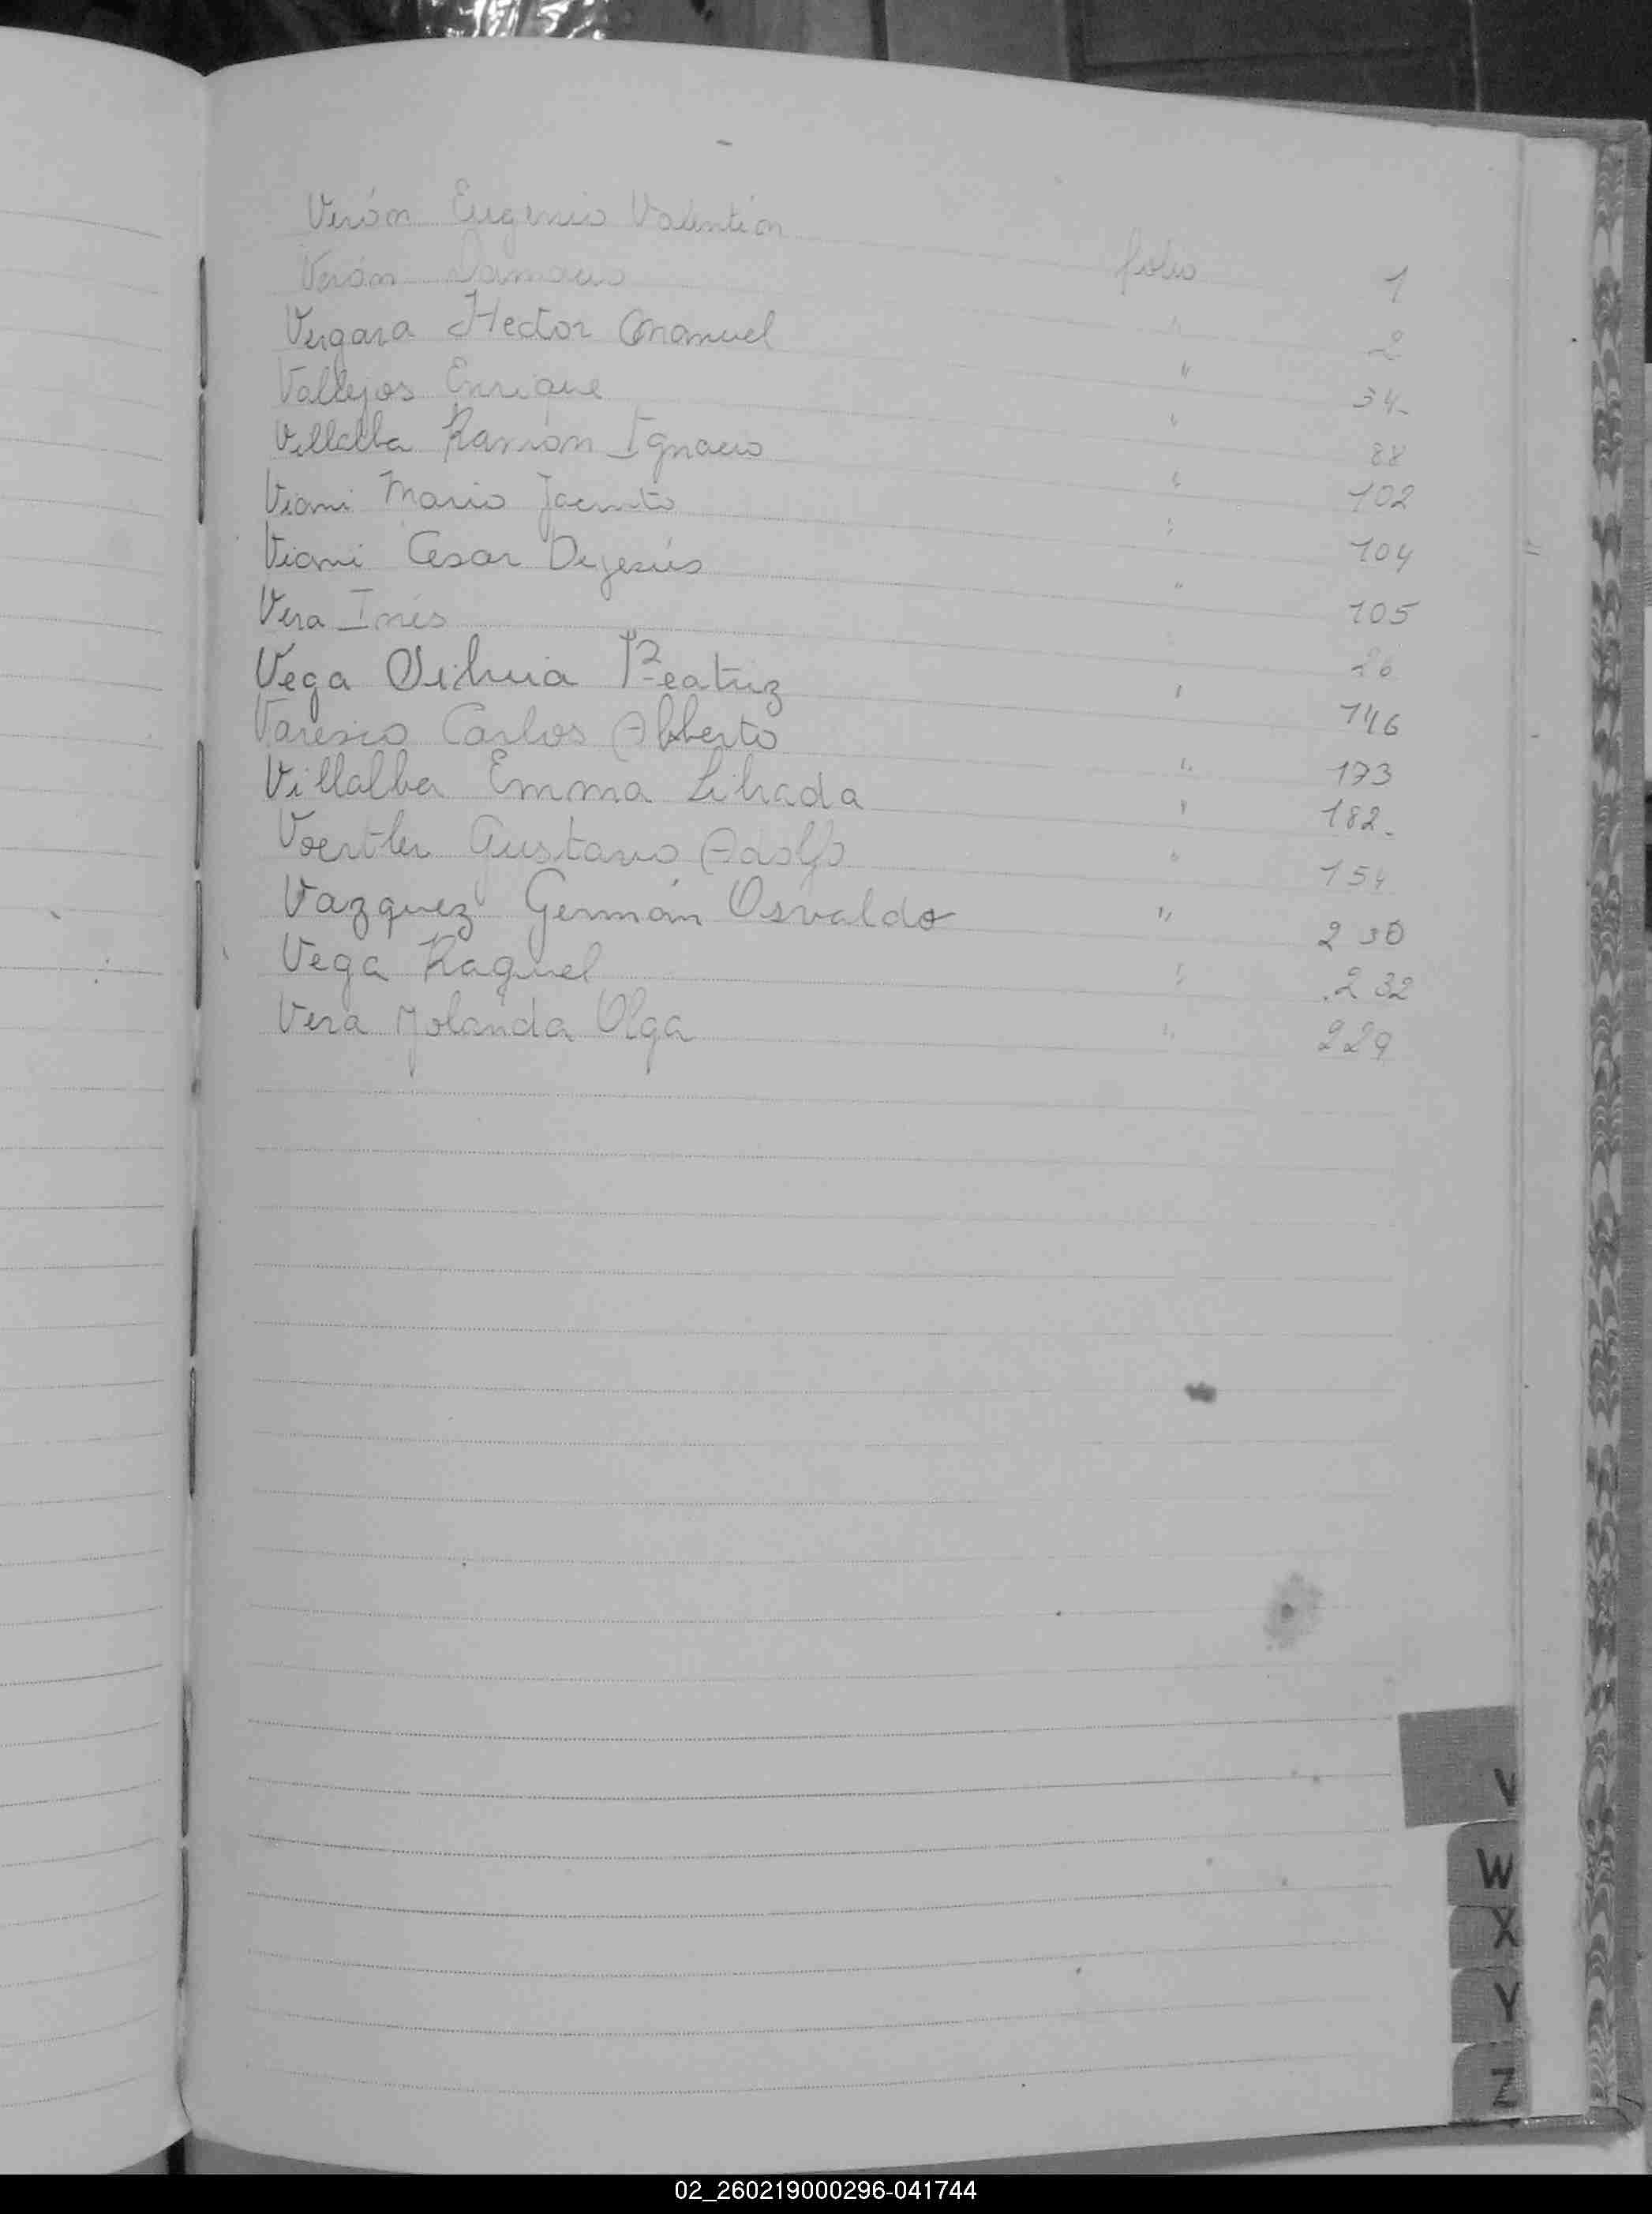 Verón Eugenio Valentín folio 1
Verón Damacio " 2
Vergara Hector Manuel " 34-
Vallejos Enrique " 88
Villalba Ramón Ignacio " 102
Viani Mario Jacinto " 104
Viani Cesar Dejesús " 105
Vera Inés "
Vega Silvia Beatriz " 146
Carlos Alberto " 173
Villalba Emma Librada " 182-
Voertler Gustavo Adolfo " 154
Vazquez Germán Osvaldo " 230
Vega Raquel " 232
Vera Yolanda Olga " 229
V
W
X
Y
Z
02_260219000296-041744